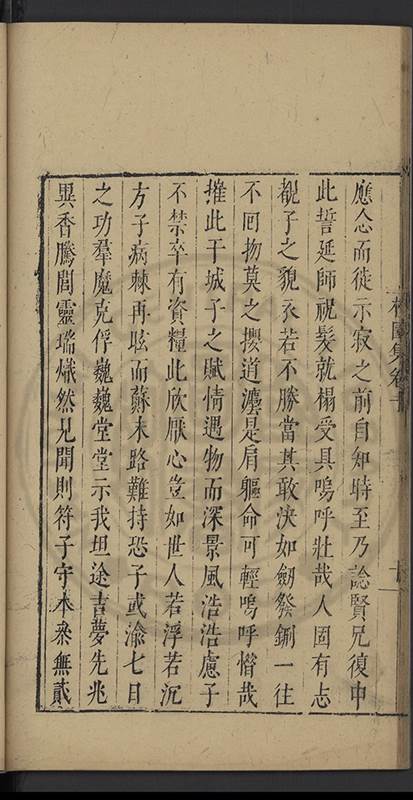 應念而徒示寂之前自知時至乃諗賢兄復申
此誓延師祝髮就榻受具嗚呼壯哉人固有志
覩子之貌衣若不勝當其敢決如劒發鉶一往
不回物莫之攖道瀍是肩軀命可輕嗚呼惜哉
摧此干城子之賦情遇物而深景風浩浩慮子
不禁卒有資糧此欣厭心豈如世人若浮若沉
方子病棘再眩而蘇末路難持恐子或渝七日
之功羣魔克俘巍巍堂堂示我坦途吉夢先兆
異香騰閭靈瑞熾然見聞則符子守本來無貳
集卷十